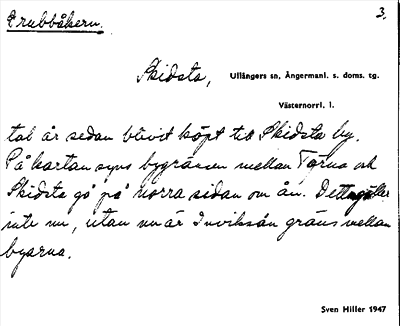 Grubbåkern.
3.
Skidsta, Ullångers sn, Ångermanl. s. doms. tg.
Västernorrl. l.
tal år sedan blivit köpt till Skidsta by.
På kartan syns bygränsen mellan Torna och
Skidsta gå på norra sidan om ån. Detta gäller
inte nu, utan nu är Inviksån gräns mellan
byarna.
Sven Hiller 1947